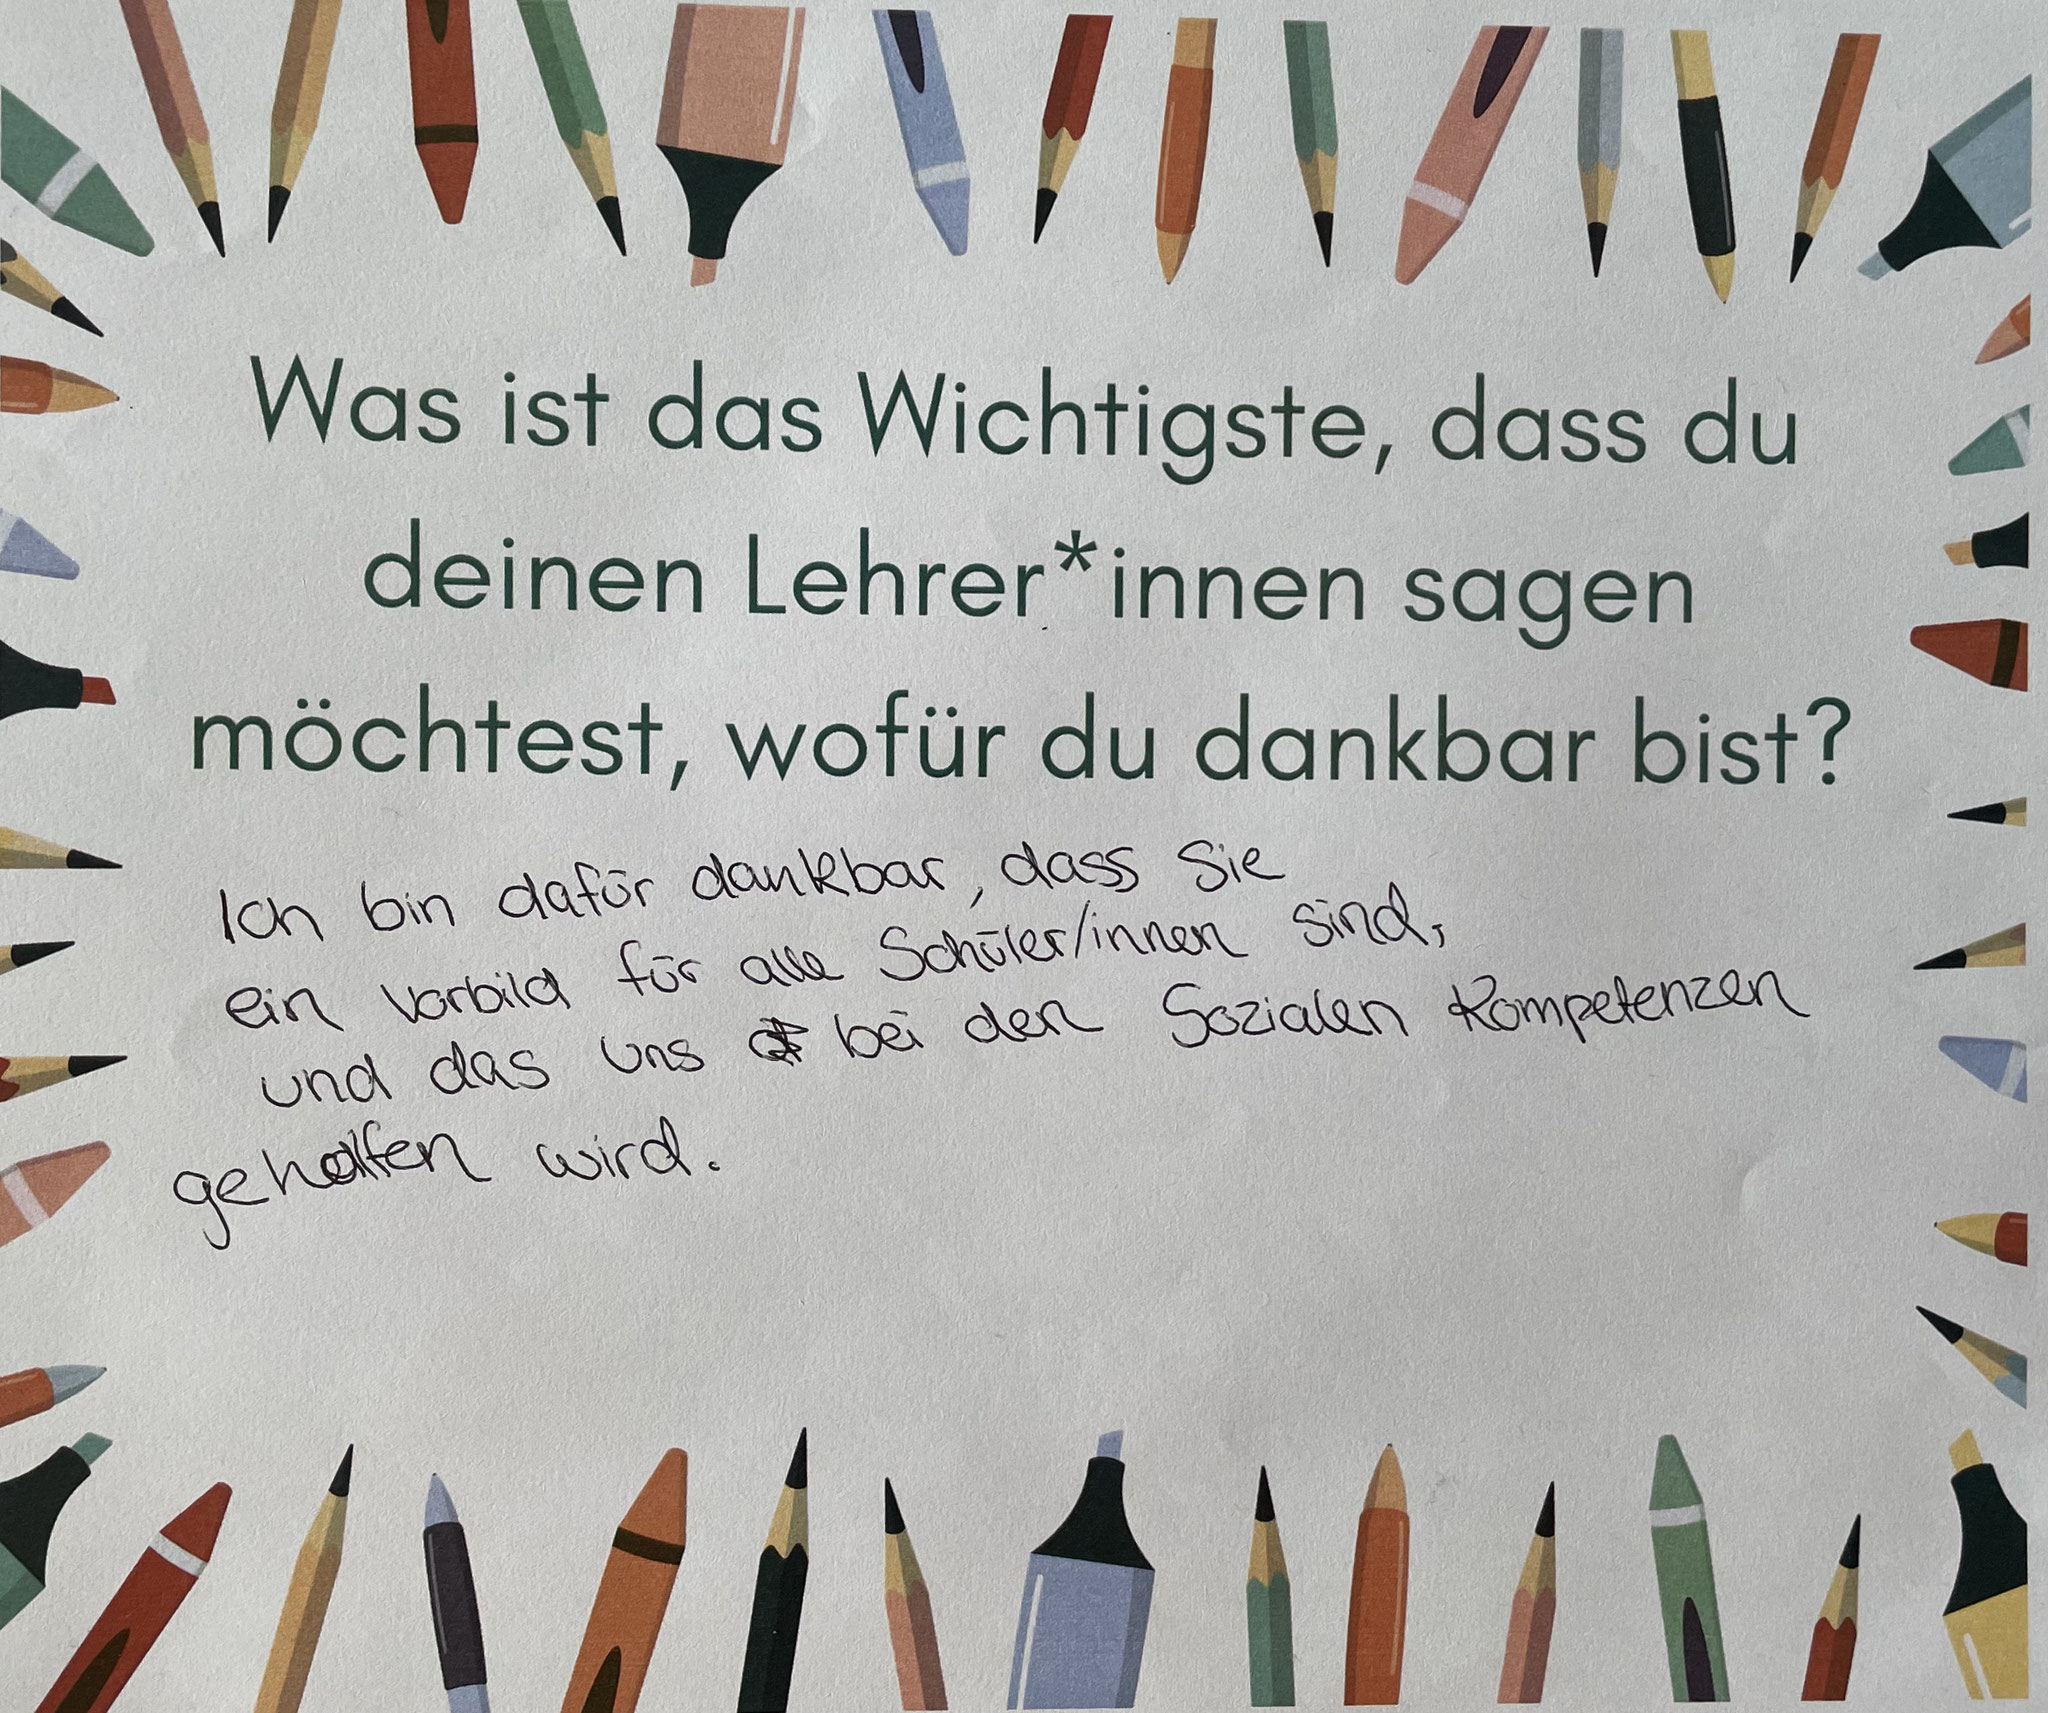 Was ist das Wichtigste, dass du
deinen Lehrer*innen sagen
möchtest, wofür du dankbar bist?
Ich bin dafür dankbar, dass Sie
ein Vorbild für alle Schüler/innen sind,
und das uns bei den Sozialen Kompetenzen
geholfen wird.